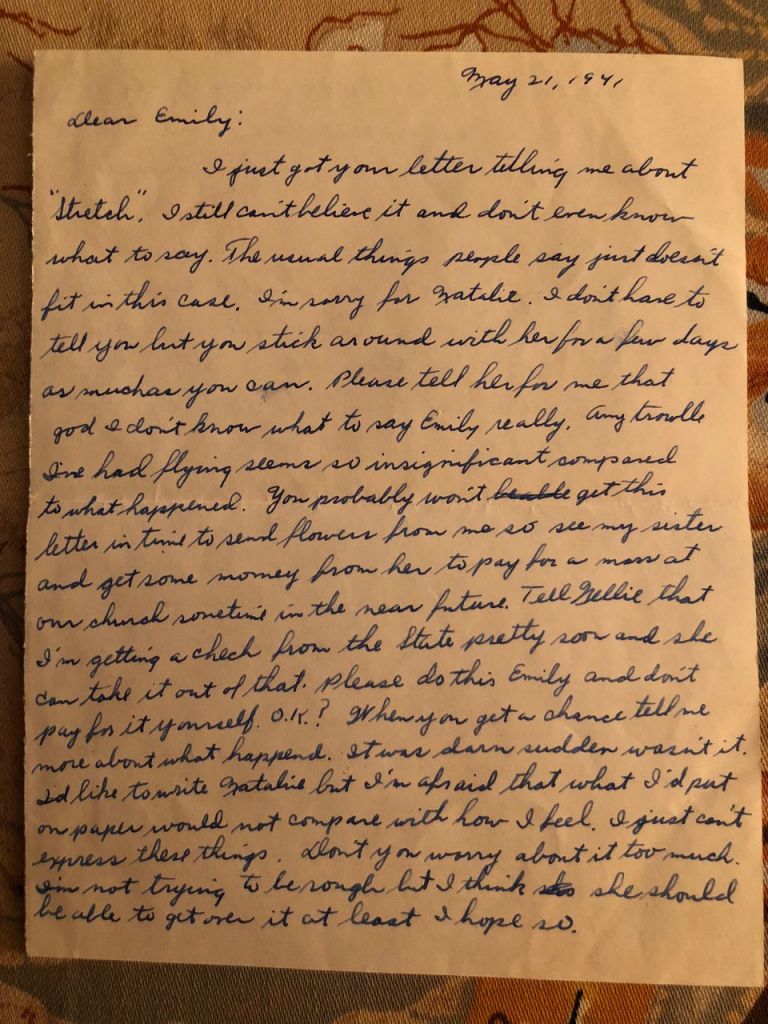 May 21, 1941
Dear Emily:
I just got your letter telling me about
"Stretch". I still can't believe it and don't even know
what to say. The usual things people say just doesn't
fit in this case. I'm sorry for Natalie. I don't have to
tell you but you stick around with her for a few days
as much as you can. Please tell her for me that
god I don't know what to say Emily really. Any trouble
I've had flying seems so insignificant compared
to what happened. You probably won't be able get this
letter in time to send flowers from me so see my sister
and get some money from her to pay for a mass at
our church sometime in the near future. Tell Nellie that
I'm getting a check from the State pretty soon and she
can take it out of that. Please do this Emily and don't
pay for it yourself. O.K.? When you get a chance tell me
more about what happend. It was darn sudden wasn't it.
I'd like to write Natalie but I'm afraid that what I'd put
on paper would not compare with how I feel. I just can't
express these things. Don't you worry about it too much.
I'm not trying to be rough but I think she should
be able to get over it at least I hope so.